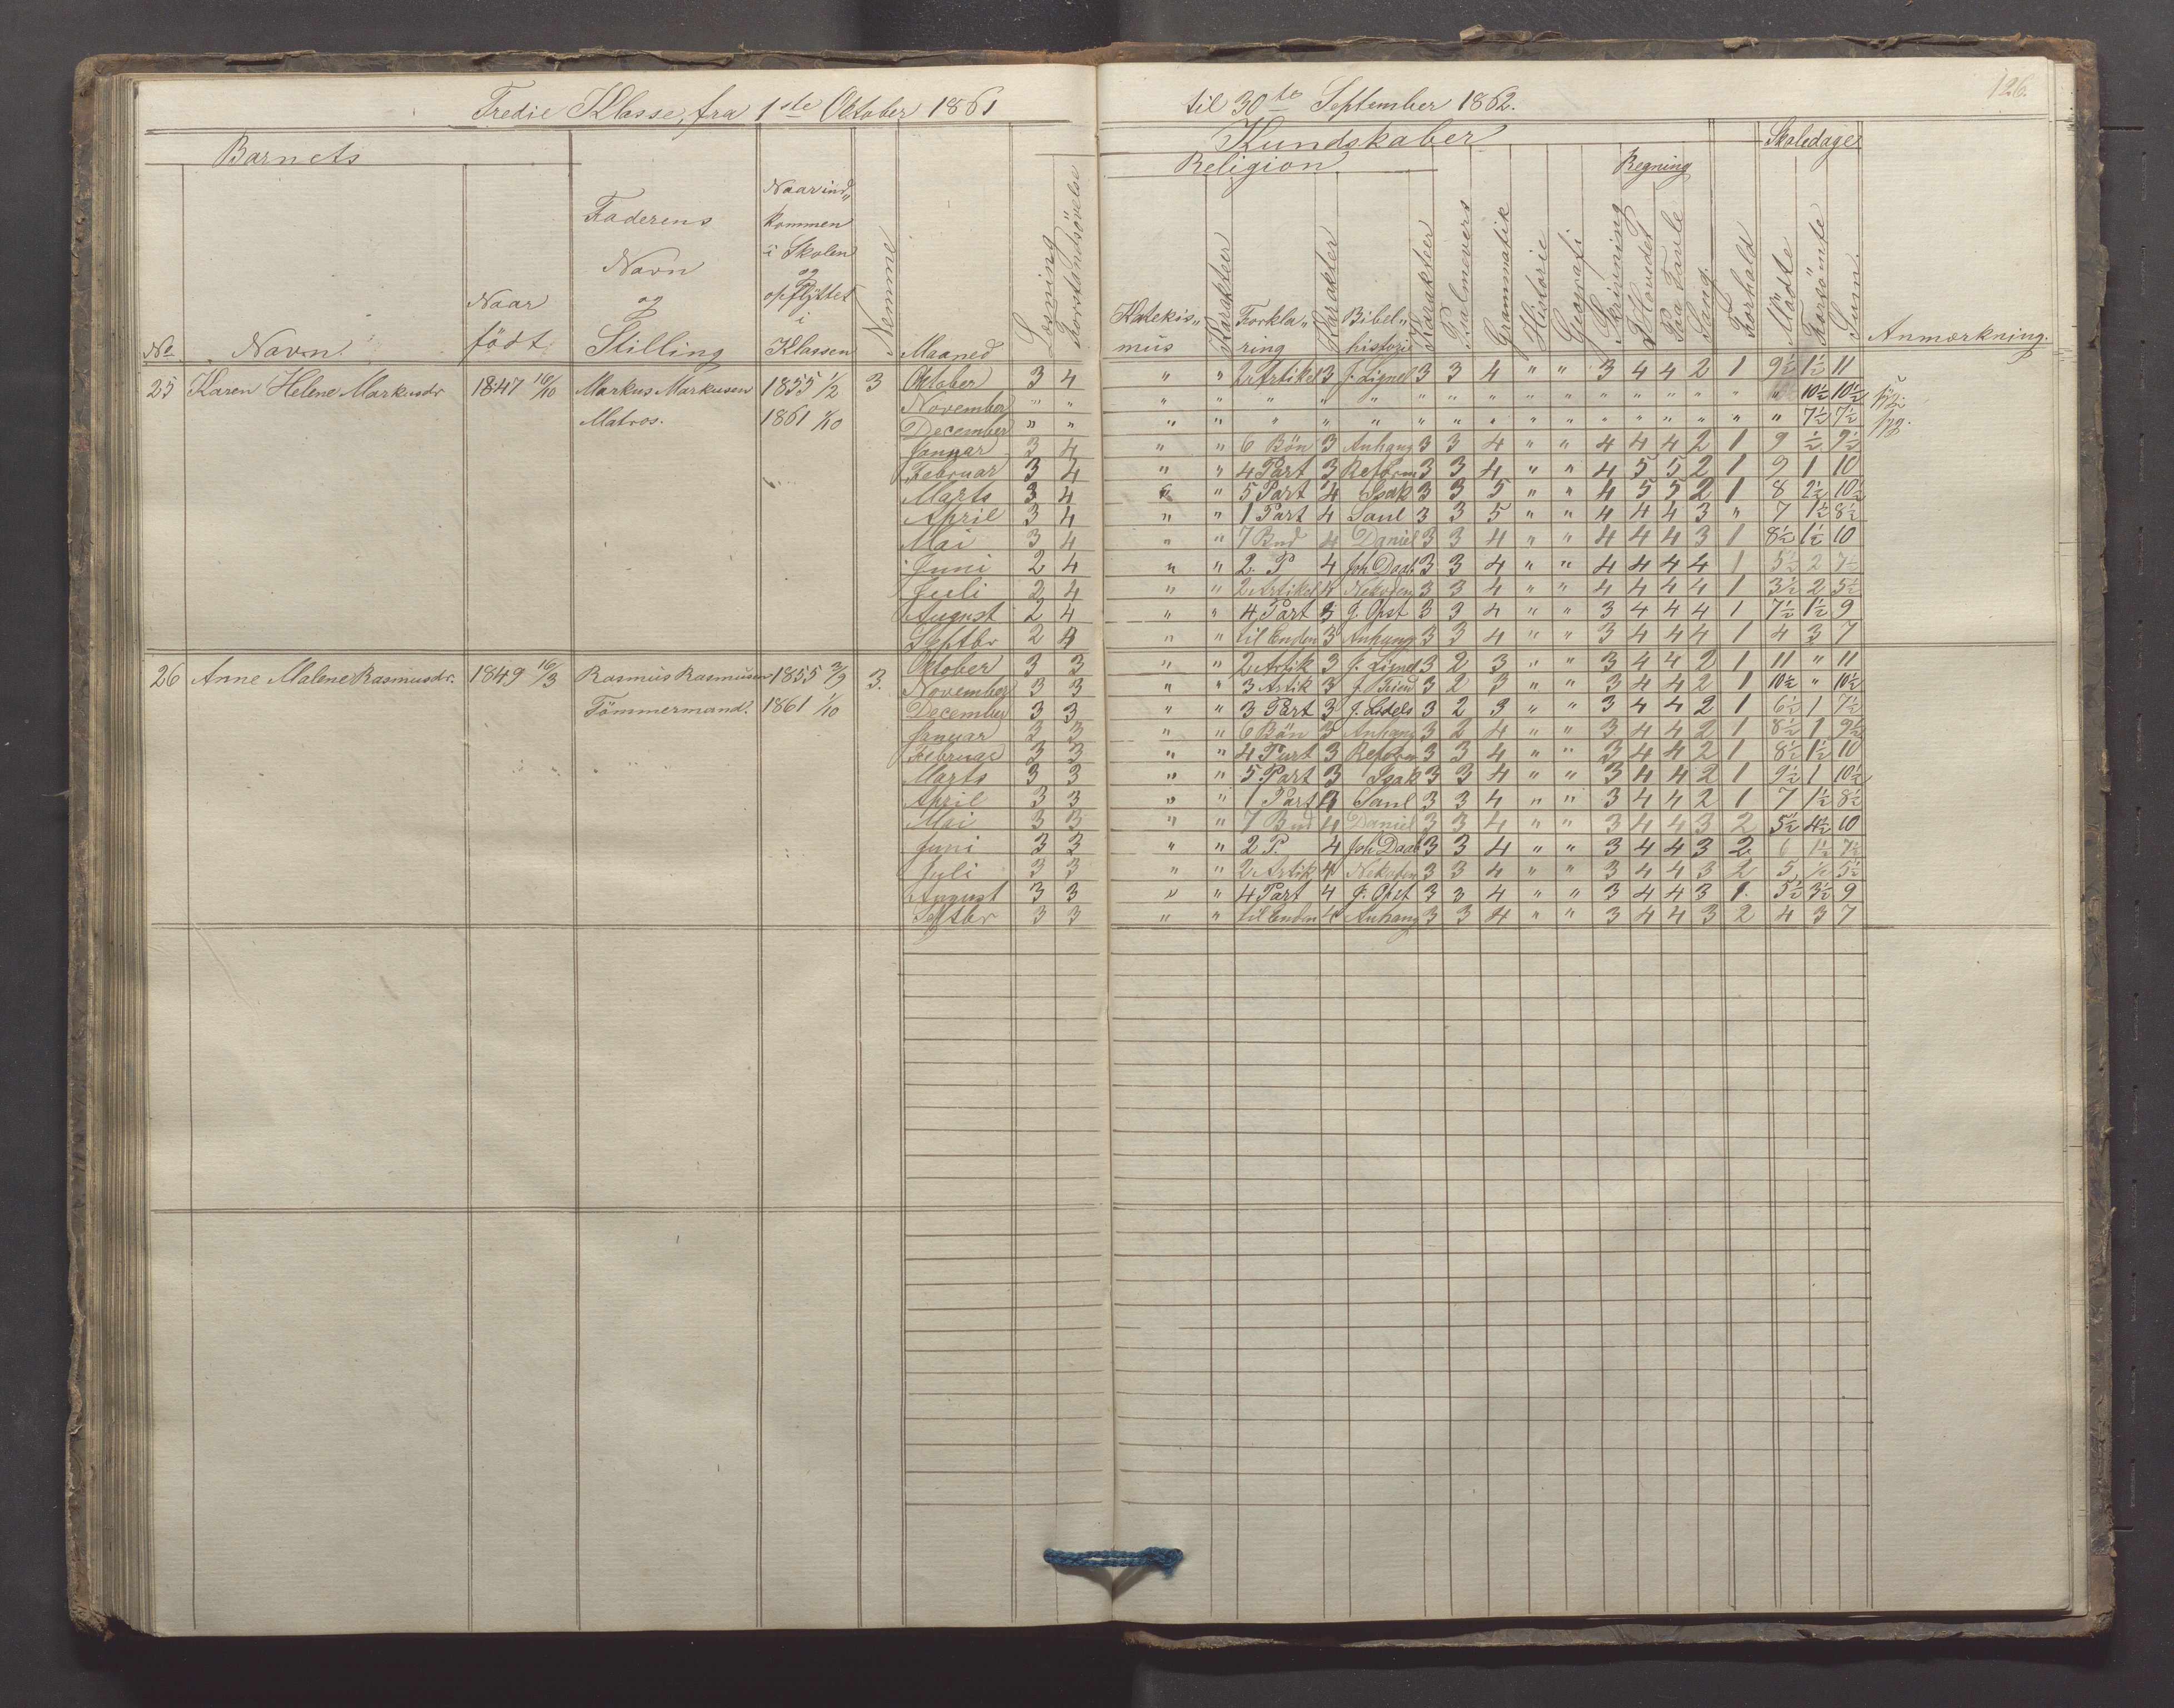 126.
Tredie Klasse, fra 1ste Oktober 1861 til 30te September 1862.
Barnets
Kundskaber
Skoledage
Religion
Regning
No
Navn.
Naar født
Faderens Navn og Stilling
Naar ind„ kommen i Skolen og opflyttet i Klassen
Nemme
Maaned
Læsning
Forstandsøvelse
Katekis„ mus
Karakteer
Forkla„ ring
Karakter
Bibel„ historie
Karakter
Psalmevers
Grammatik
Historie
Geografi
Skrivning
I Hovedet
Paa Tavle
Sang
Forhold
Mødte
Forsømte
Sum.
Anmærkning.
25 Karen Helene Markusdr 1847 16/10 Markus Markusen 1855 1/2 3 Oktober 3 4 " " 2 Artikel 3 J. Lignel 3 3 4 " " 3 4 4 2 1 9½ 1½ 11
Matros. 1861 1/10
November " " " " " " " " " " " " " " " " " " " 10½ 10½
December " " " " " " " " " " " " " " " " " " " 7½ 7½
Januar 3 4 " " 6 Bön 3 Anhang 3 3 4 " " 4 4 4 2 1 9 ½ 9½
Februar 3 4 " " 4 Part 3 Reform 3 3 4 " " 4 5 5 2 1 9 1 10
Marts 3 4 " 5 Part 4 Isak 3 3 5 " " 4 5 5 2 1 8 2½ 10½
April 3 4 " " 1 Part 4 Saul 3 3 5 " " 4 4 4 3 " 7 1½ 8½
Mai 3 4 " " 7 Bud 4 Daniel 3 3 4 " " 4 4 4 3 1 8½ 1½ 10
Juni 2 4 " " 2. P 4 Joh Daab 3 3 4 " " 4 4 4 4 1 5½ 2 7½
Juli 2 4 " " 2 Artikel 4 Nekodem 3 3 4 " " 4 4 4 4 1 3½ 2 5½
August 2 4 " " 4 Part 3 J. Opst 3 3 4 " " 3 4 4 4 1 7½ 1½ 9
Septbr 2 4 " " til Enden 3 Anhang 3 3 4 " " 3 4 4 4 1 4 3 7
26 Anne Malene Rasmusdr. 1849 16/3 Rasmus Rasmusen 1855 3/9 3. Oktober 3 3 " " 2 Artik 3 J. Lignel 3 2 3 " " 3 4 4 2 1 11 " 11
Tömmermand. 1861 1/10
November 3 3 " " 3 Artik 3 J. Friend 3 2 3 " " 3 4 4 2 1 10½ " 10½
December 3 3 " " 3 Part 3 J. Lidels 3 2 3 " " 3 4 4 2 1 6½ 1 7½
Januar 3 3 " " 6 Bön 3 Anhang 3 2 4 " " 3 4 4 2 1 8½ 1 9½
Februar 3 3 " " 4 Part 3 Reform 3 3 4 " " 3 4 4 2 1 8½ 1½ 10
Marts 3 3 " " 5 Part 3 Isak 3 3 4 " " 3 4 4 2 1 9½ 1 10½
April 3 3 " " 1 Part 4 Saul 3 3 4 " " 3 4 4 2 1 7 1½ 8½
Mai 3 3 " " 7 Bud 4 Daniel 3 3 4 " " 3 4 4 3 2 5½ 4½ 10
Juni 3 3 " " 2 P. 4 Joh Daab 3 3 4 " " 3 4 4 3 2. 6 1½ 7½
Juli 3 3 " " 2 Artik 4 Nekodem 3 3 4 " " 3 4 4 3 2 5 ½ 5½
August 3 3 " " 4 Part 4 J. Opst 3 3 4 " " 3 4 4 3 1. 5½ 3½ 9
Septbr 3 3 " " til Enden 4 Anhang 3 3 4 " " 3 4 4 3 2 4 3 7